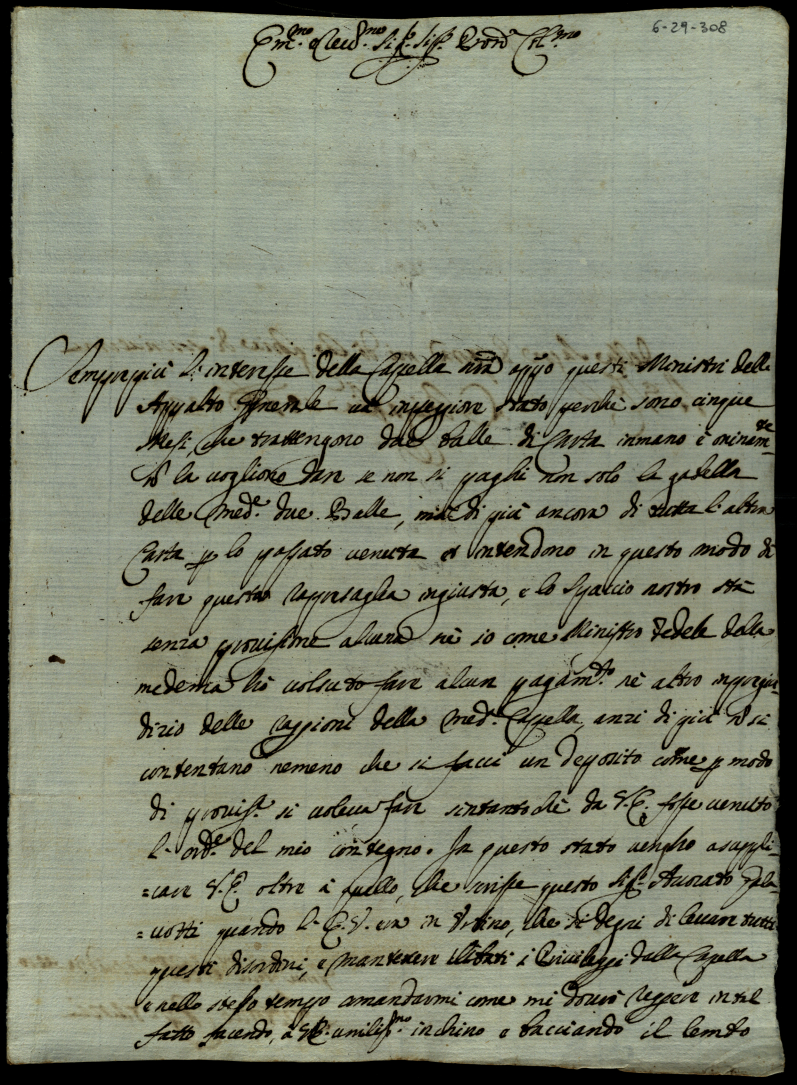 6-29-308
Em.mo e Reud.mo Sig.r Sig.r Pron.e Col.mo
Sempre più l'interesse della Cappella apo questi Ministri dello
Appalto Generale và in peggiore stato perche sono cinque
Mesi, che trattengono due balle di Carta inmano è
nõ la vogliono dare se non si paghi non solo la gabella
delle med.e due Balle, mà di più ancora di tutta l'altra
Carta p lo passato venuta et intendono in questo modo di
fare questa rapresaglia ingiusta, e lo Spaccio nostro stà
senza provisione alcuna nè io come Ministro fedele della
medema hò volsuto fare alcun pagam.to nè altro inpregiu-
dizio delle raggioni della med.a Cappella, anzi di più nõ si
contentano nemeno che si facci un deposito come p modo
di provis.e si voleva fare sintanto chè da V.E. fosse venuto
l'ord.e del mio contegno. In questo stato vengho asuppli-
=care V.E. oltre à quello, che scrisse questo Sig.r Avocato Pala-
=votti quando l'E.V. era in Urbino, che si degni di levare tutti
questi disordini, e mantenere illibati i Privileggi della Capella
e nello stesso tempo amandarmi come mi dovrò regere in tal
fatto facendo, à V.E. umiliss.mo inchino e bacciando il lembo